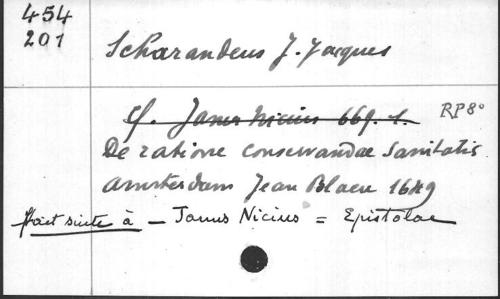 454
201
Scharandeus J. Jacques
Cf. Janus Nicius 669. 1.
RP 8°
De ratione conservandae Sanitatis
Amsterdam Jean Blaeu 1649
Fait suite à — Janus Nicius = Epistolae